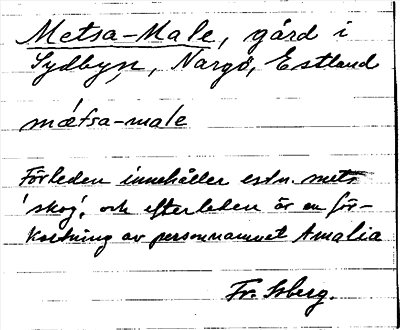 Metsa-Male, gård i
Sydbyn, Nargö, Estland
mets̀a-male
Förleden innehåller estn. mets
'skog', och efterleden är en för-
kortning av personnamnet Amalia
Fr. Isberg.